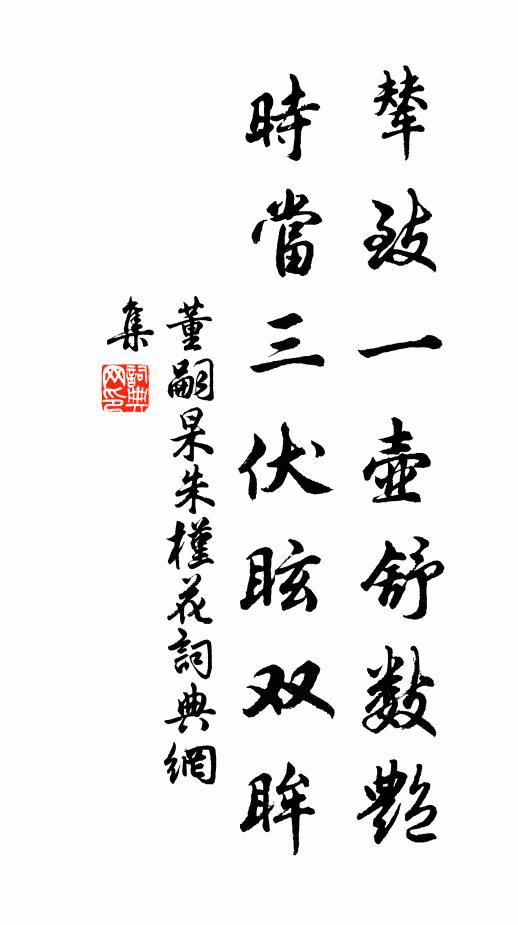 輦致一壺舒数艷
時當三伏眩双眸
董嗣杲朱槿花詞典網
集
詞典网印